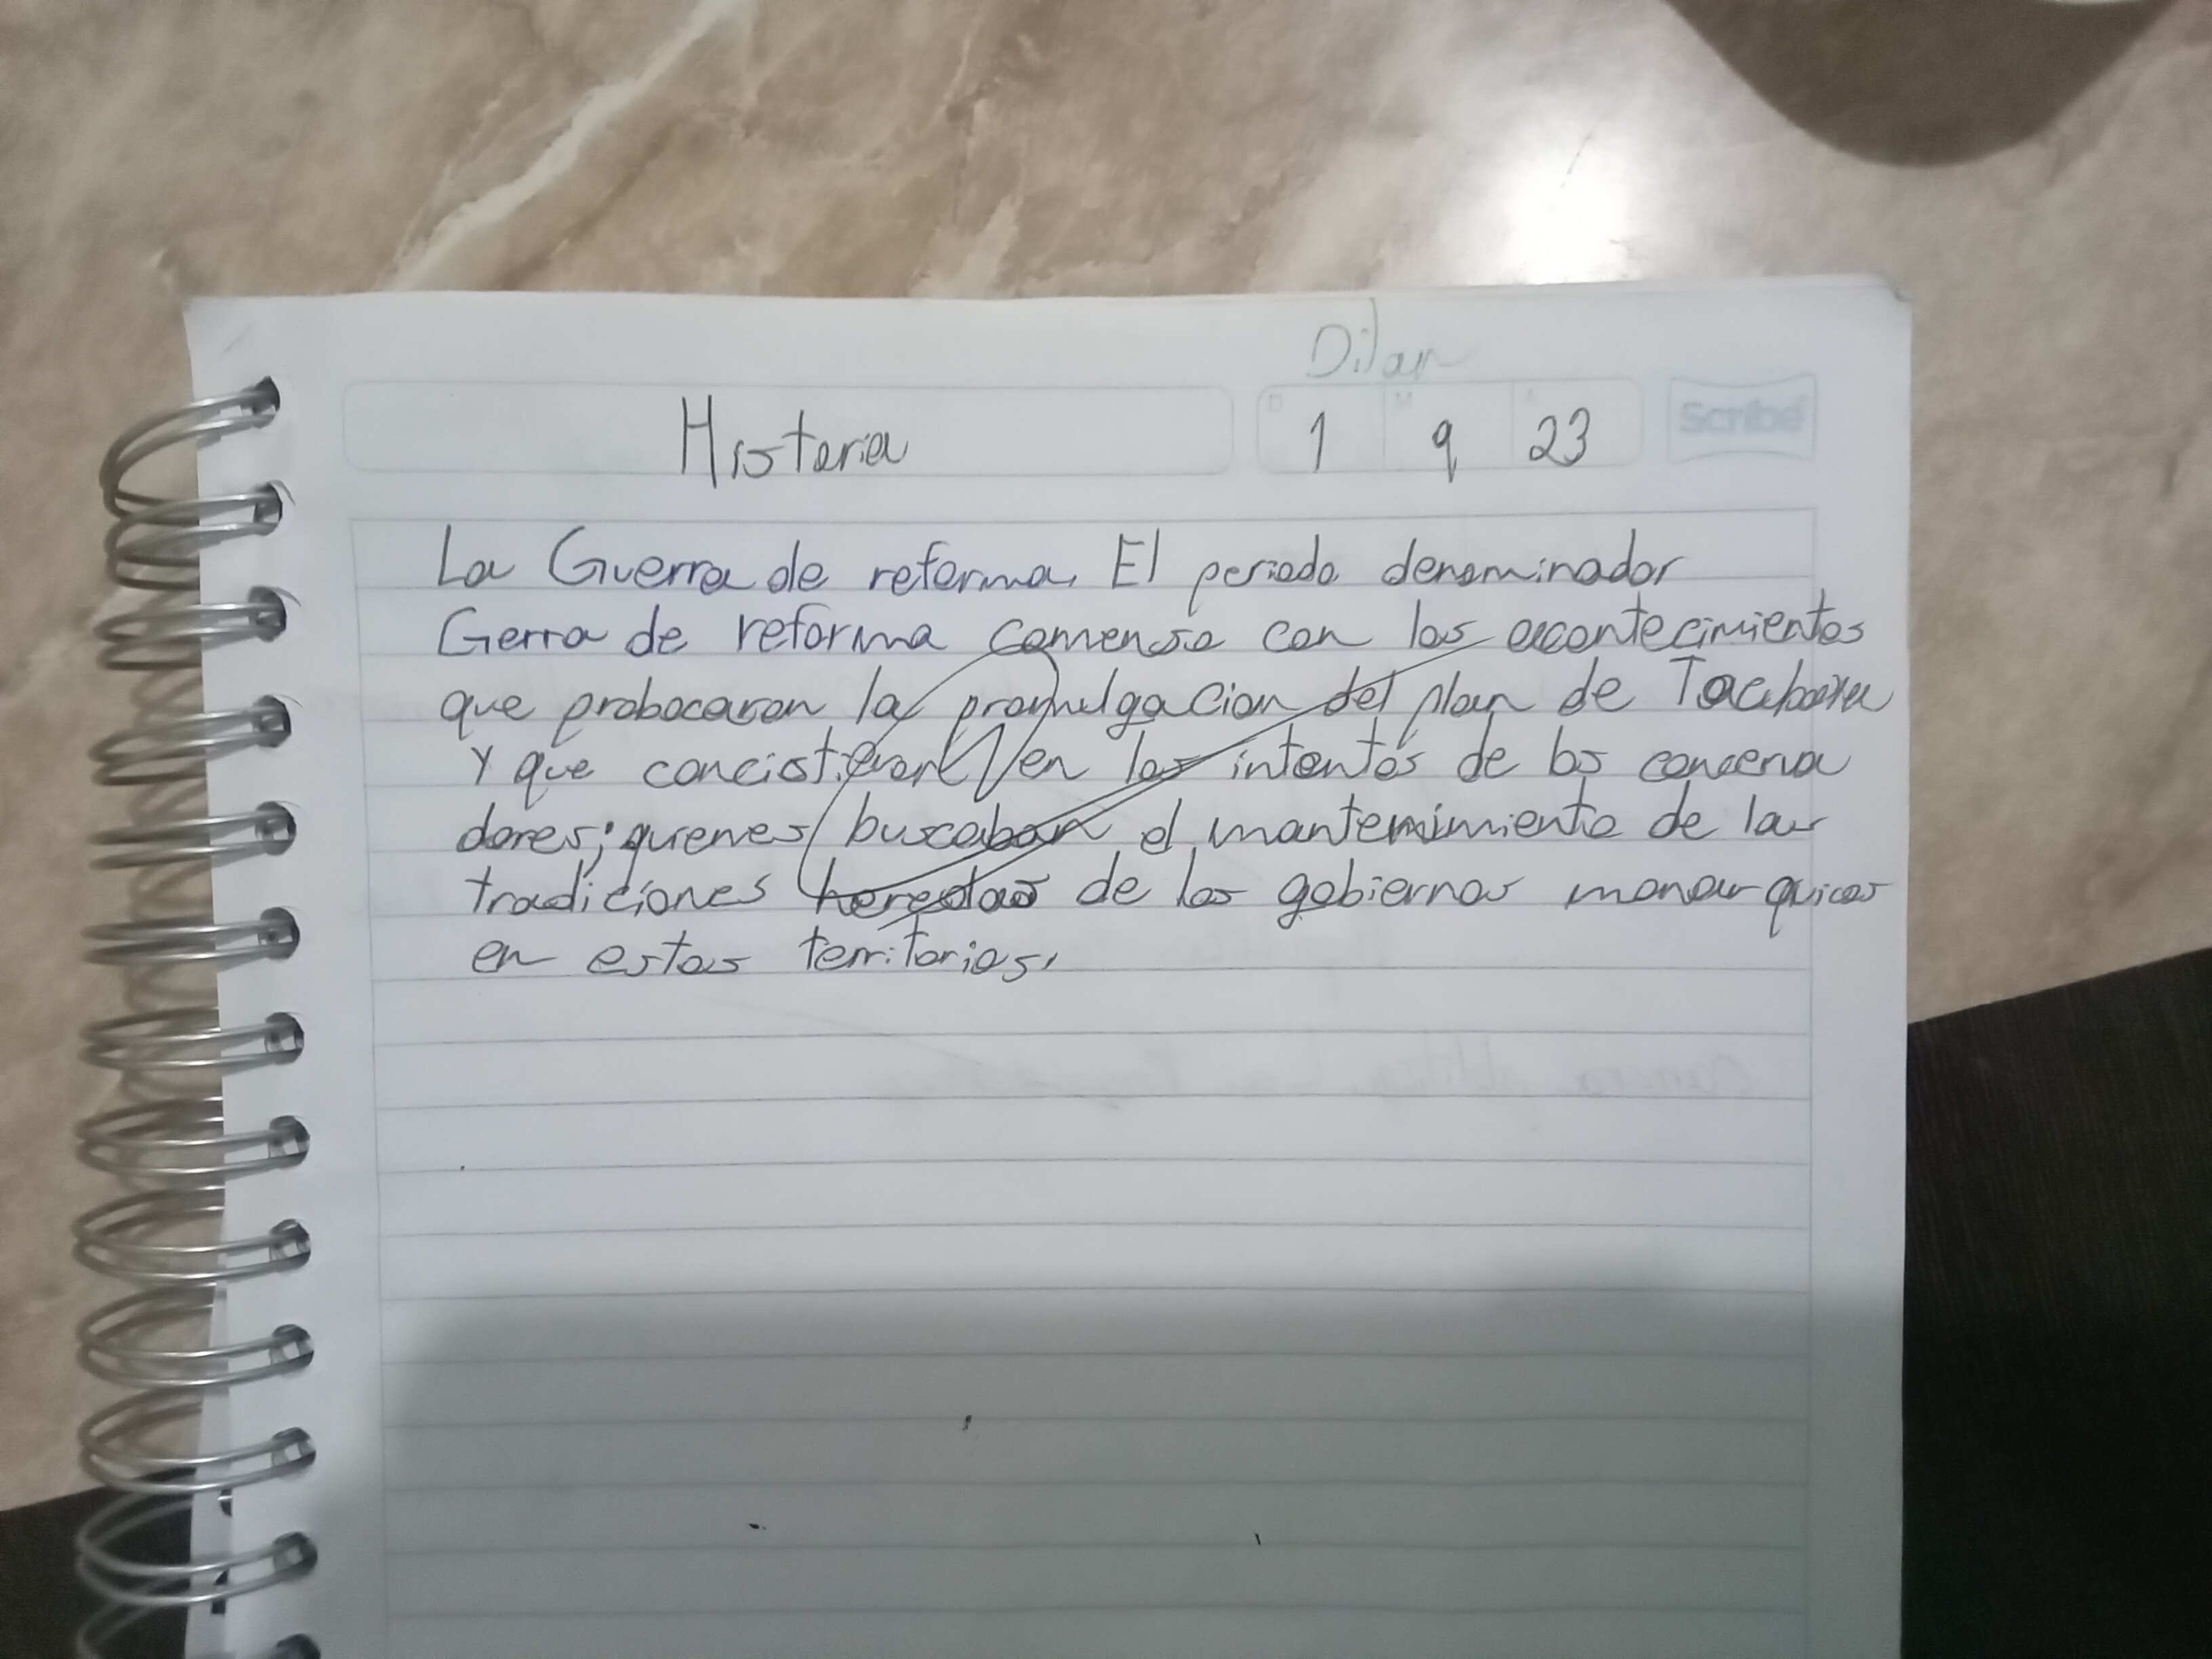 Dilan
Historia
D M A
1 9 23
Scribe
La Guerra de reforma. El periodo denominador
Gerra de reforma comenso con los acontecimientos
que probocaron la promulgacion del plan de Tacubaya
Y que concistieron en los intentos de los conserva
dores; quienes buscaban el mantenimiento de las
tradiciones heredas de los gobiernos monarquicos
en estos territorios.